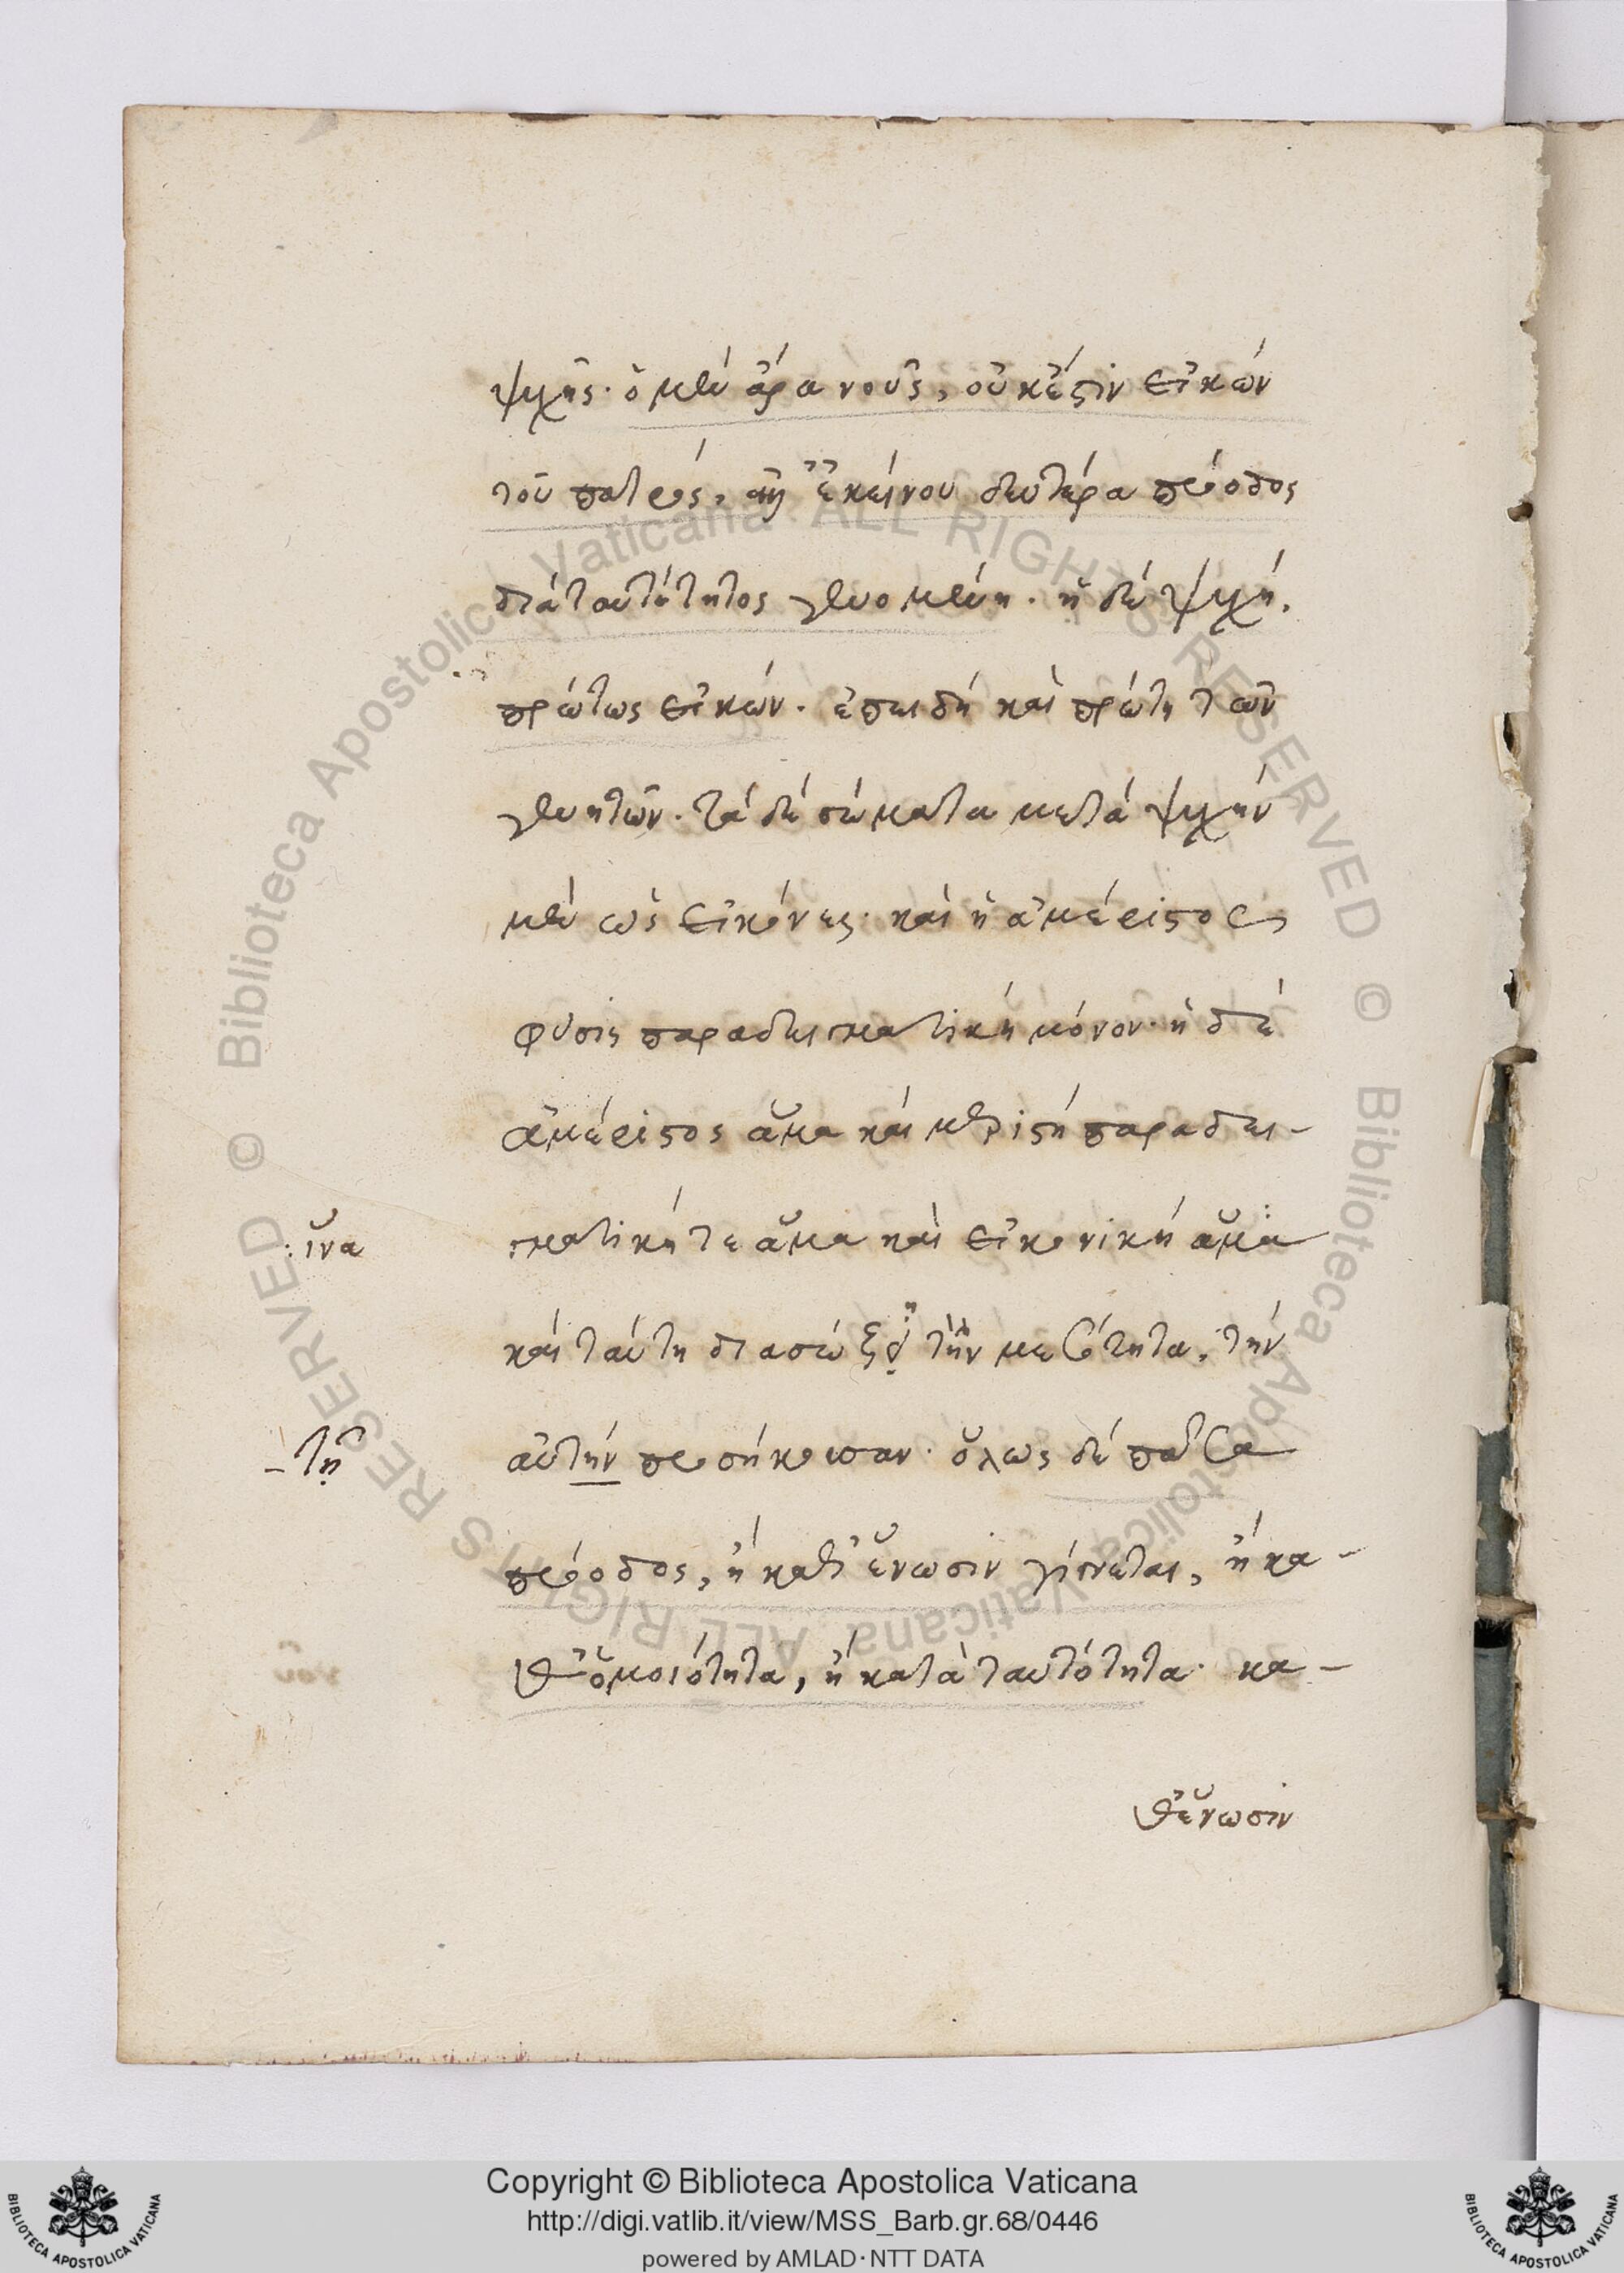 ψυχῆς· ὁ μὲν ἄρα νοῦς, οὐκ ἔστιν εἰκὼν
τοῦ πατρός, ἀλλ' ἐκείνου δευτέρα πρόοδος
διὰ ταυτότητος γενομένη· ἡ δὲ ψυχή,
πρώτως εἰκών· ἐπειδὴ καὶ πρώτη τῶν
γενητῶν· τὰ δὲ σώματα μετὰ ψυχὴν
μὲν ὡς εἰκόνες· καὶ ἡ ἀμέριστος
φύσις παραδειγματικὴ μόνον· ἡ δὲ
ἀμέριστος ἅμα καὶ μεριστὴ παραδει-
ἵνα
γματική τε ἅμα καὶ εἰκονικὴ ἅμα
καὶ ταύτη διασώζῃ τὴν μεσότητα, τὴν
-τῇ
αὐτὴν προσήκουσαν· ὅλως δὲ πᾶσα
πρόοδος, ἢ καθ' ἕνωσιν γίγνεται, ἢ κα-
θ' ὁμοιότητα, ἢ κατὰ ταυτότητα· κα-
θ' ἕνωσιν
Copyright © Biblioteca Apostolica Vaticana
http://digi.vatlib.it/view/MSS_Barb.gr.68/0446
powered by AMLAD·NTT DATA
BIBLIOTECA APOSTOLICA VATICANA
BIBLIOTECA APOSTOLICA VATICANA
© Biblioteca Apostolica Vaticana ALL RIGHTS RESERVED © Biblioteca Apostolica Vaticana ALL RIGHTS RESERVED